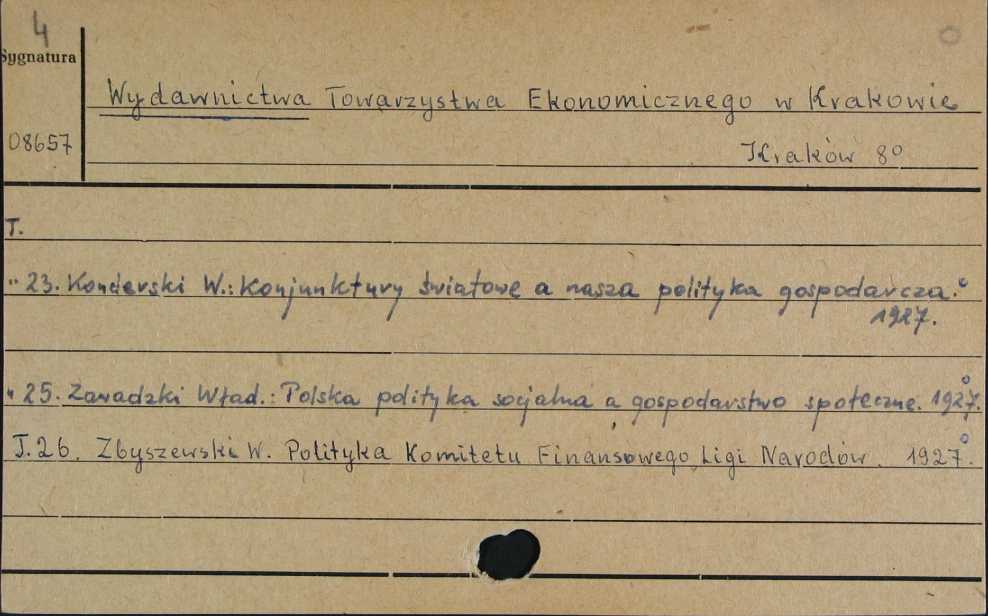 4
Sygnatura
Wydawnictwa Towarzystwa Ekonomicznego w Krakowie
08657
Kraków 8°
T.
" 23. Konderski W.: Konjunktury światowe a nasza polityka gospodarcza.°
1927.
" 25. Zawadzki Wład.: Polska polityka socjalna a gospodarstwo społeczne. 1927.°
T. 26. Zbyszewski W. Polityka Komitetu Finansowego Ligi Narodów. 1927.°